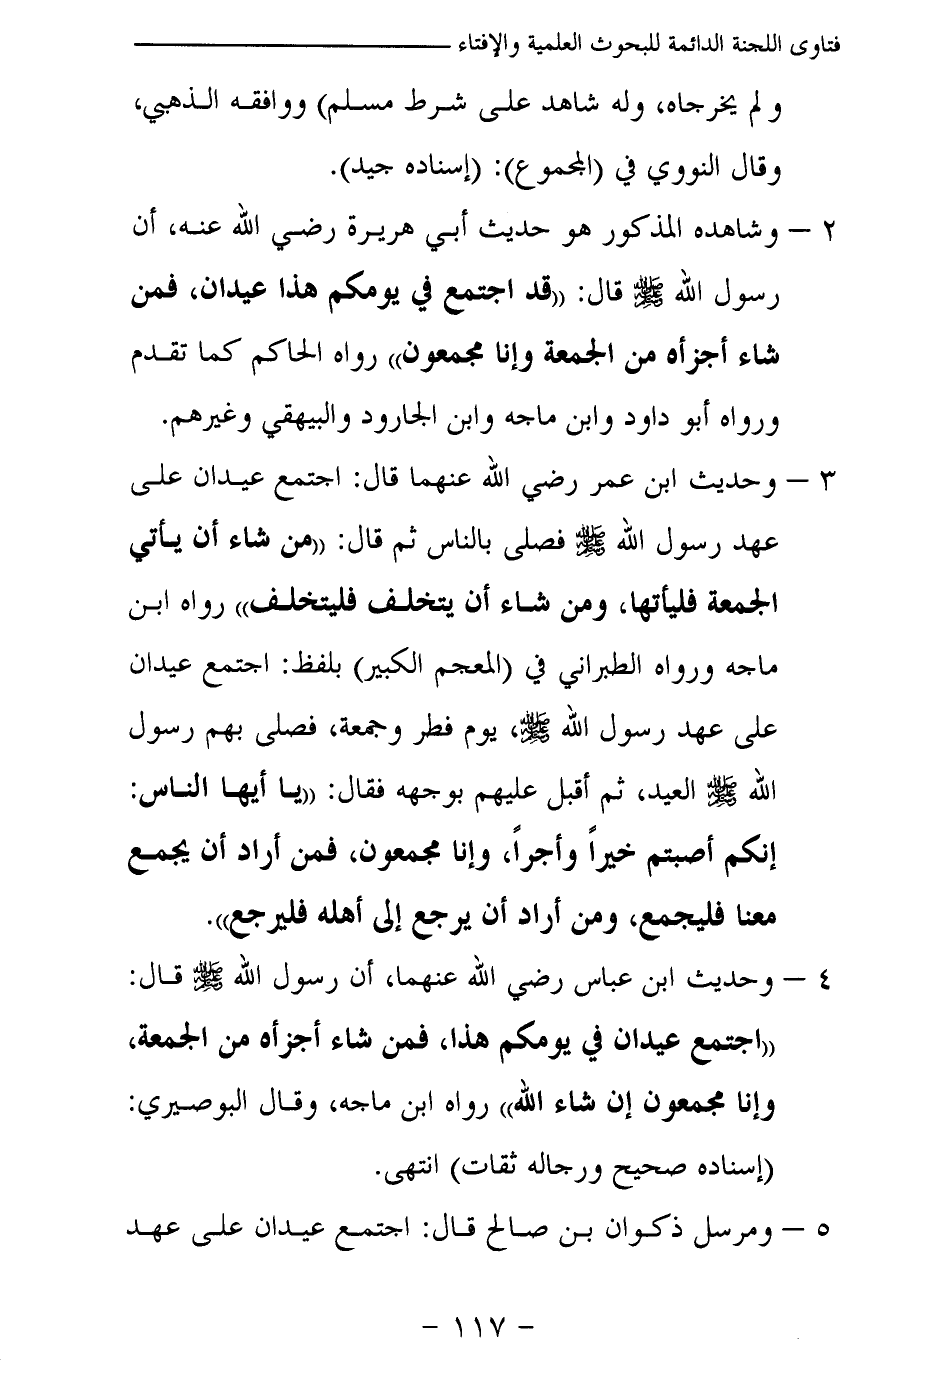 فتاوى اللجنة الدائمة للبحوث العلمية والإفتاء
ولم يخرجاه، وله شاهد على شرط مسلم) ووافقه الذهبي،
وقال النووي في (المجموع): (إسناده جيد).
٢ – وشاهده المذكور هو حديث أبي هريرة رضي الله عنه، أن
رسول الله ﷺ قال: ((قد اجتمع في يومكم هذا عيدان، فمن
شاء أجزأه من الجمعة وإنا مجمعون)) رواه الحاكم كما تقدم
ورواه أبو داود وابن ماجه وابن الجارود والبيهقي وغيرهم.
٣ – وحديث ابن عمر رضي الله عنهما قال: اجتمع عيدان على
عهد رسول الله ﷺ فصلى بالناس ثم قال: ((من شاء أن يأتي
الجمعة فليأتها، ومن شاء أن يتخلف فليتخلف)) رواه ابن
ماجه ورواه الطبراني في (المعجم الكبير) بلفظ: اجتمع عيدان
على عهد رسول الله ﷺ، يوم فطر وجمعة، فصلى بهم رسول
الله ﷺ العيد، ثم أقبل عليهم بوجهه فقال: ((يا أيها الناس:
إنكم أصبتم خيراً وأجراً، وإنا مجمعون، فمن أراد أن يجمع
معنا فليجمع، ومن أراد أن يرجع إلى أهله فليرجع)).
٤ – وحديث ابن عباس رضي الله عنهما، أن رسول الله ﷺ قال:
((اجتمع عيدان في يومكم هذا، فمن شاء أجزأه من الجمعة،
وإنا مجمعون إن شاء الله)) رواه ابن ماجه، وقال البوصيري:
(إسناده صحيح ورجاله ثقات) انتهى.
٥ – ومرسل ذكوان بن صالح قال: اجتمع عيدان على عهد
– ١١٧ –